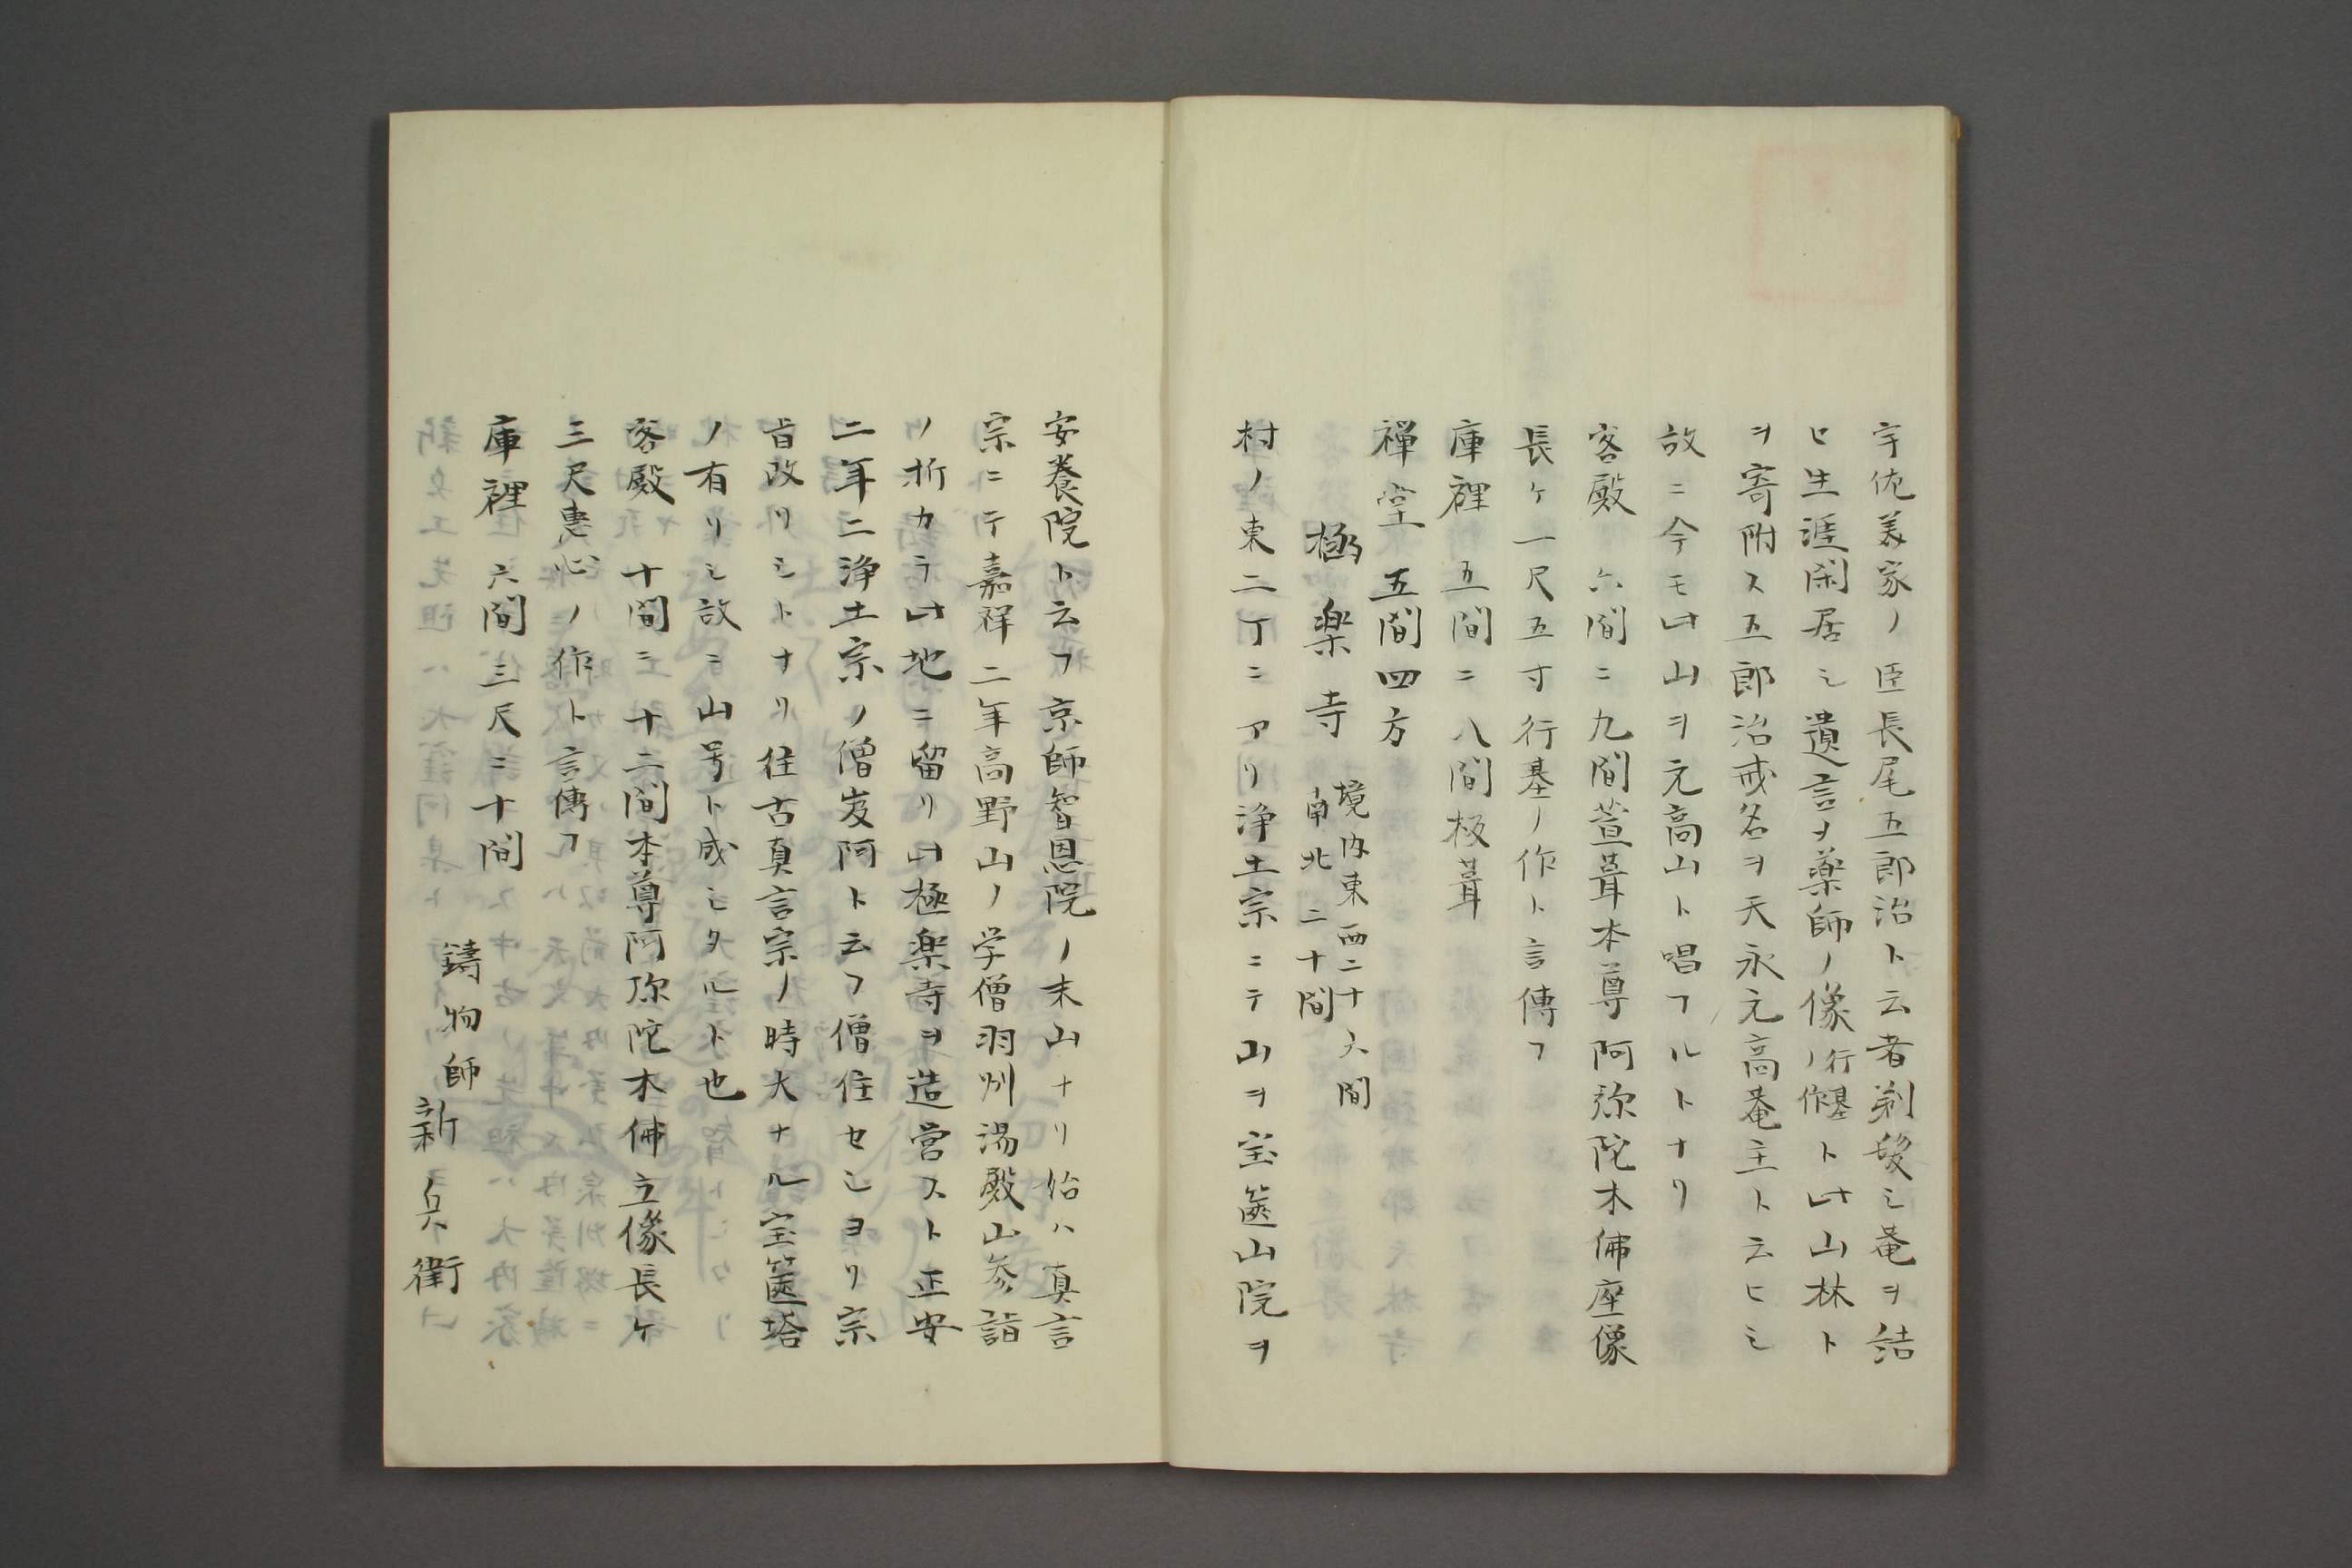 宇佐美家ノ臣長尾五郎治ト云者剃髪シ菴ヲ結
ヒ生涯閑居シ遺言ヲ薬師ノ像行基ノ作ト此山林ト
ヲ寄附ス五郎治戒名ヲ天永元高菴主ト云ヒシ
故ニ今モ此山ヲ元高山ト唱フルトナリ
客殿　六間ニ九間萱葺本尊阿弥陀木佛座像
長ケ一尺五寸行基ノ作ト言傳フ
庫裡　五間ニ八間板葺
禅堂　五間四方
極楽寺　境内東西二十六間
南北二十間
村ノ東二丁ニアリ浄土宗ニテ山ヲ宝篋山院ヲ
安養院ト云フ京師智恩院ノ末山ナリ始ハ真言
宗ニテ嘉祥二年高野山ノ学僧羽州湯殿山参詣
ノ折カラ此地ニ留リ此極楽寺ヲ造営スト正安
二年ニ浄土宗ノ僧岌阿ト云フ僧住セシヨリ宗
旨改リシトナリ往古真言宗ノ時大ナル宝篋塔
ノ有リシ故ニ山号ト成シタルト也
客殿　十間ニ十二間本尊阿弥陀木佛立像長ケ
三尺恵心ノ作ト言傳フ
庫裡　六間三尺ニ十間
鋳物師　新兵衛